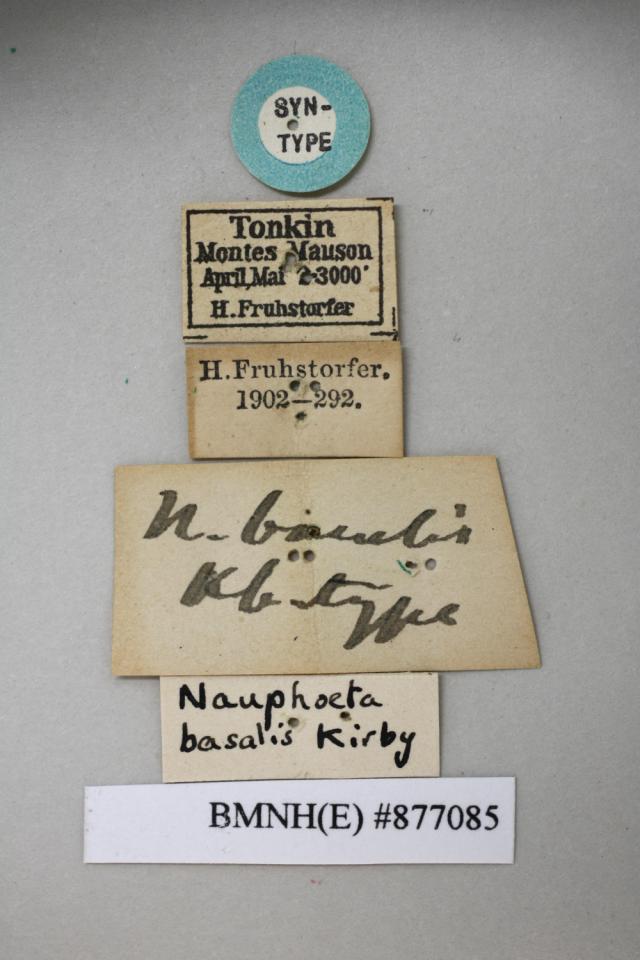 SYN-
TYPE
Tonkin
Montes Mauson
April, Mai 2-3000'
H. Fruhstorfer
H. Fruhstorfer.
1902—292.
N. basalis
Kb. type
Nauphoeta
basalis Kirby
BMNH(E) #877085